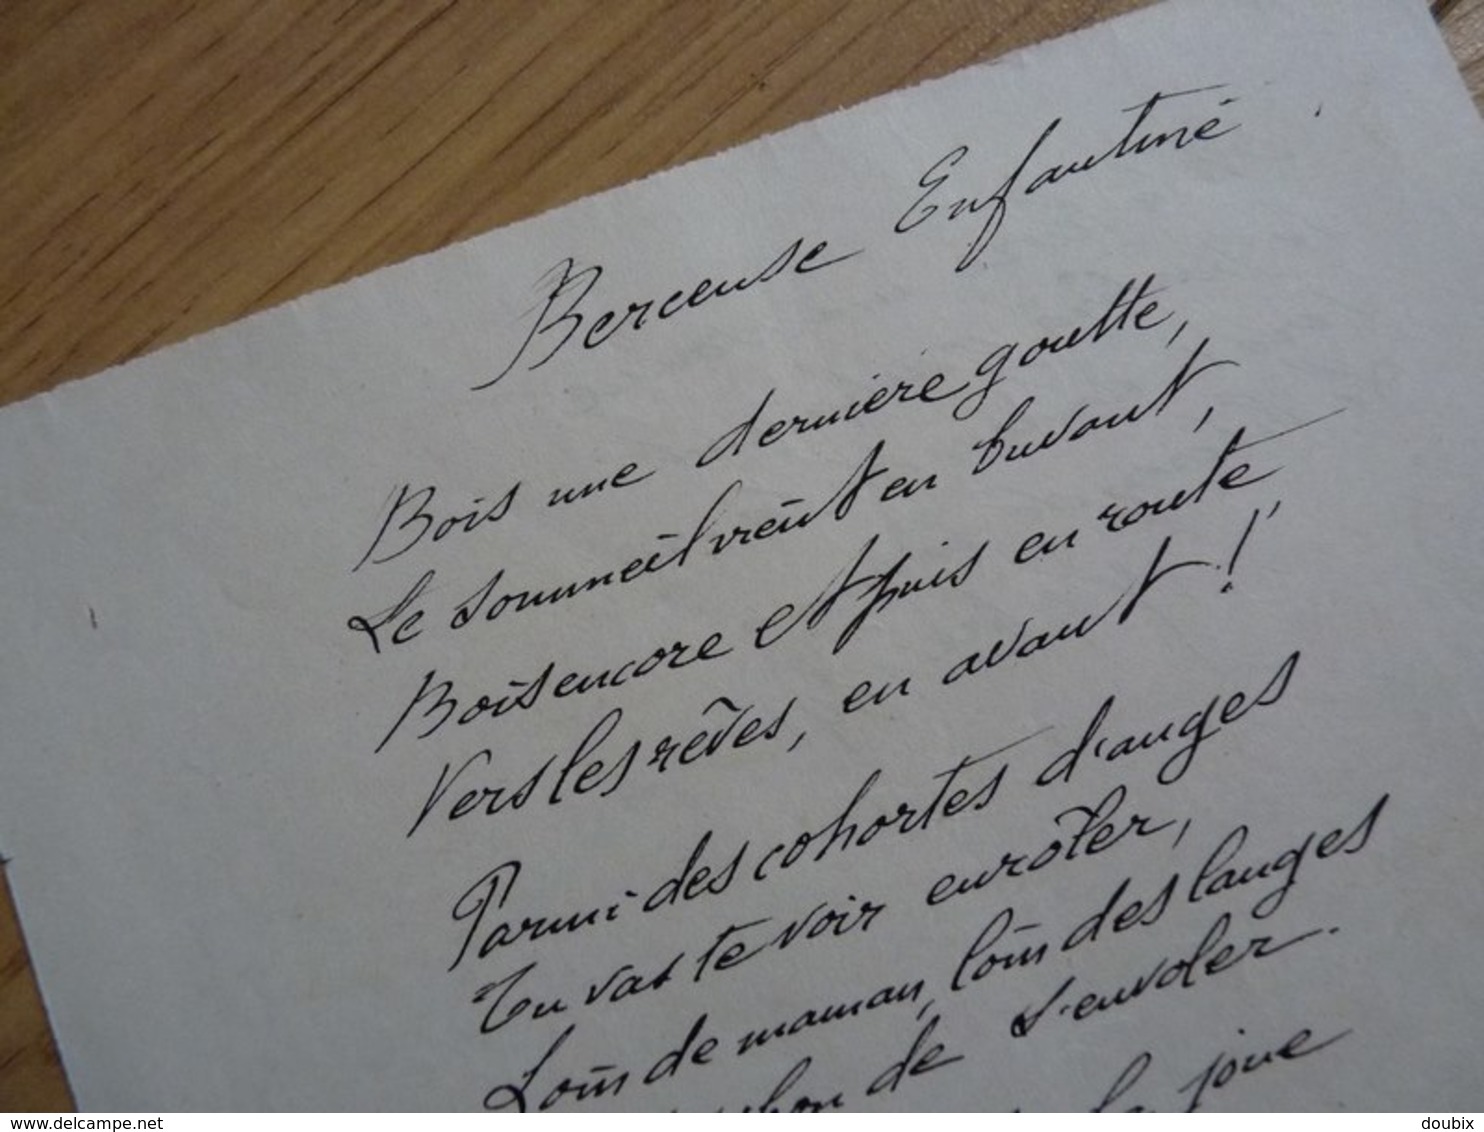 Berceuse Enfantine
Bois une dernière goutte,
Le sommeil vient en buvant,
Bois encore et puis en route,
Vers les rêves, en avant !
Parmi des cohortes d'anges
Tu vas te voir enrôler,
Loin de maman, loin des langes
de s'envoler.
la joue
delcampe.net
doubix